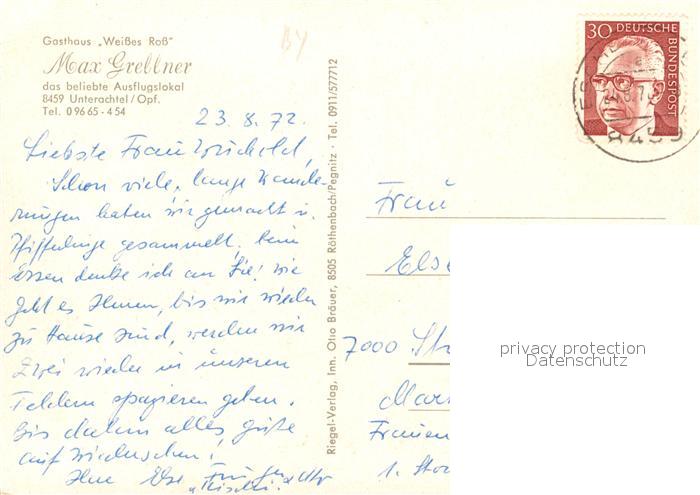 Gasthaus „Weißes Roß"
Max Grellner
das beliebte Ausflugslokal
8459 Unterachtel / Opf.
Tel. 0 96 65 - 4 54
BY
23.8.72.
Liebste Frau
Schon viele, lange Wande-
rungen haben wir gemacht u.
Pfifferlinge gesammelt, beim
Essen denke ich an Sie! Wie
geht es Ihnen, bis wir wieder
zu Hause sind, werden wir
zwei wieder in unseren
Feldern spazieren gehen.
Bis dahin alles gute
auf Wiedersehen!
Ihre Else
Riegel-Verlag, Inh. Otto Bräuer, 8505 Röthenbach/Pegnitz · Tel. 0911/577712
30 DEUTSCHE
BUNDESPOST
8459
Frau
Else
7000 St
Mar
Frauen
1. Sto
privacy protection
Datenschutz